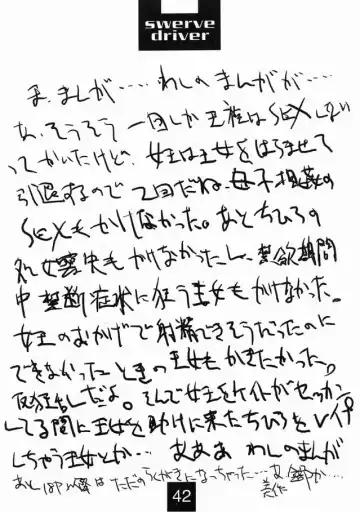 swerve
driver
ま、まんが……わしのまんがが……
あ、そうそう 一回しか王族はSEXしない
ってかいたけど、女王は王女をはらませて
引退するので2回だね。母子相姦の
SEXもかけなかった。あとちひろの
処女喪失もかけなかったし、禁欲期間
中 禁断症状に狂う王女もかけなかった。
女王のおかげで射精できそうだったのに
できなかったときの王女もかきたかった
だよ。そんで女王をケイトがセッカン
してる間に王女を助けに来たちひろをレイプ
しちゃう王女とか… あああ わしのまんが
あと はただのらくがきになっちゃった…
42